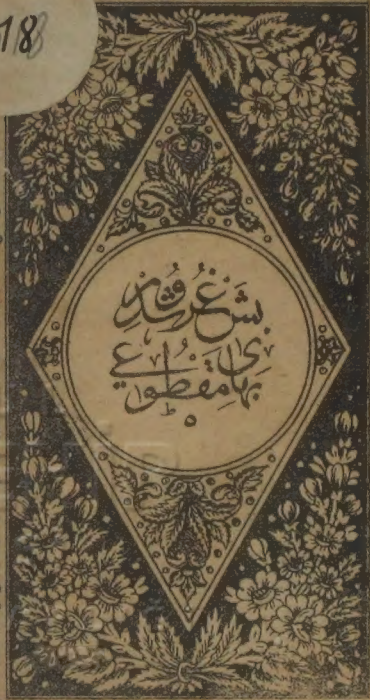 18
بش غروشدر
بهای مقطوعی
٥